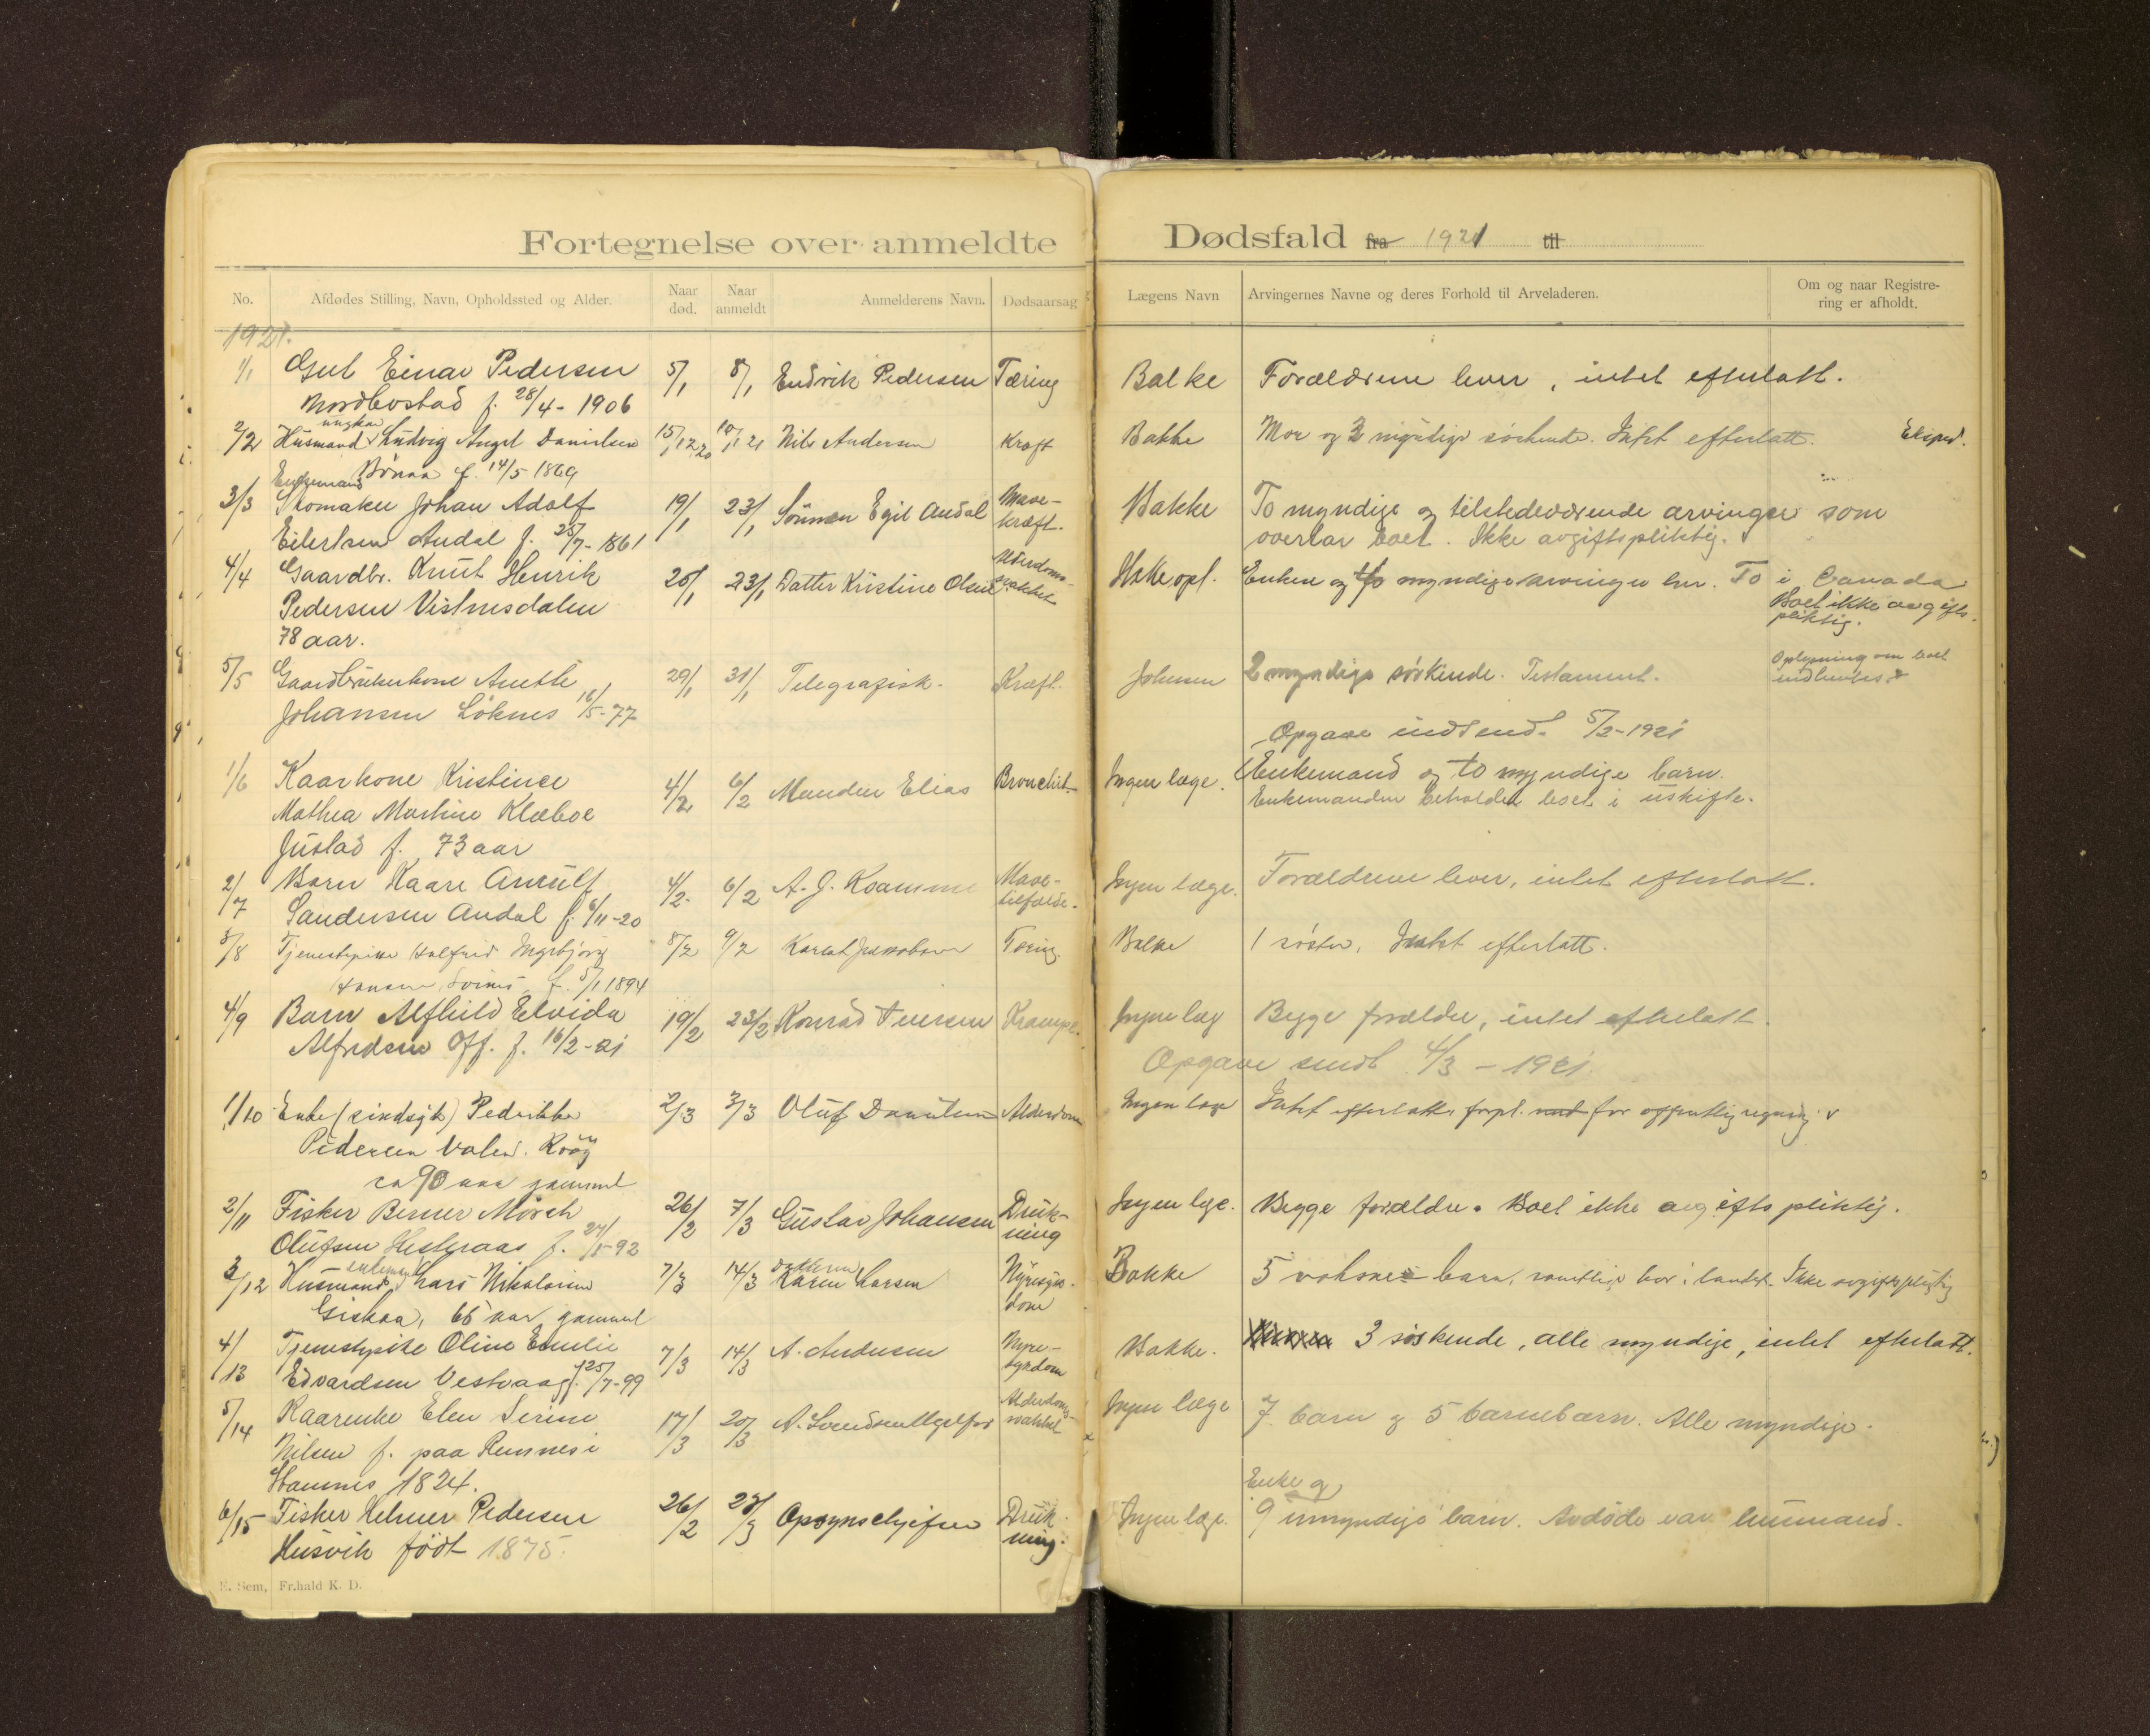 Fortegnelse over anmeldte Dødsfald fra 1921 til
No. Afdødes Stilling, Navn, Opholdssted og Alder. Naar død. Naar anmeldt Anmelderens Navn. Dødsaarsag Lægens Navn Arvingernes Navne og deres Forhold til Arveladeren. Om og naar Registrering er afholdt.
1921.
1/1 Einar Pedersen 5/1 8/1 Endrik Pedersen Tæring Balke Forældrene lever, intet efterlatt.
Nordbostad f. 28/4-1906
ungkar
2/2 Husmand Ludvig Angel Danielsen 15/12 20 10/1 21 Nils Andersen Kræft Bakke Mor og 3 myndige søskende. Intet efterlatt. Eksped.
Bönaa f. 14/5 1869
Enkemand
3/3 Skomaker Johan Adolf 19/1 23/1 Sönnen Egil Andal Mave- Bakke To myndige og tilstedeværende arvinger som
kræft.
Eilertsen Andal f. 28/7-1861 overtar boet. Ikke avgiftspliktig.
4/4 Gaardbr. Knut Henrik 20/1 23/1 Datter Kristine Olsen Alderdoms- svakhet Enken og to myndige arvinger her. To i Canada
Pedersen Vistnesdalen Boet ikke avgifts-
pliktig.
78 aar.
5/5 Gaardbrukerkone Anette 29/1 31/1 Telegrafisk. Kræft. Johnsen 2 myndige söskende. Testament. Oplysning om boet
indhentes
Johansen Löknes 16/5-77
Opgave indsend. 5/2-1921
1/6 Kaarkone Kristince 4/2 6/2 Manden Elias Bronchit. Ingen læge. Enkemand og to myndige barn.
Mathea Martine Klæboe Enkemanden beholder boet i uskifte.
Justad f. 73 aar
2/7 Barn Kaare Arnulf 4/2. 6/2 A. J. Mave- Ingen læge. Forældrene lever, intet efterlatt.
tilfælde.
Sandersen Andal f. 6/11-20
3/8 Tjenestepike Halfrid Ingebjørg 8/2 9/2 Tæring. Balke 1 søster. Intet efterlatt.
Hansen f. 5/1 1894
4/9 Barn Alfhild Elvida 19/2 23/2 Konrad Iversen Krampe. Ingen læg Begge forældre, intet efterlatt.
Alfredsen Off. f. 16/2-21
Opgave sendt 4/3 - 1921
1/10 Enke (sindsyk) Pedrikke 2/3 3/3 Oluf Danielsen Alderdom Ingen læge Intet efterlatt, forpl. for offentlig regning.
Pedersen Valen. Röög
ca 90 aar gammel
2/11 Fisker Berner Mörch 26/2 7/3 Gustav Johansen Druk- Ingen lege. Begge forældre. Boet ikke avgiftspliktig.
ning
Olufsen Hestraas f. 24/5-92
enkemand datteren
3/12 Husmand Lars Nikolaisen 7/3 14/3 Karen Larsen Nyresyk- Bakke 5 voksne barn, samtlige bor i landet. Ikke avgiftspliktig
dom
Giskaa, 65 aar gammel
4/13 Tjenestepike Oline Emelie 7/3 14/3 A. Andersen Nyre- Bakke. 3 söskende, alle myndige, intet efterlatt.
sykdom
Edvardsen Vestvaag f. 25/7-99
5/14 Kaarenke Elen Serine 17/3 20/3 Alderdoms- Ingen læge 7 barn og 5 barnebarn. Alle myndige.
svakhet
Nilsen f. paa Runnes i
Hamnes 1824.
Enke og
6/15 Fisker Helmer Pedersen 26/2 Opsynschefen Druk- Ingen læge. 9 umyndige barn. Avdöde var husmand.
ning.
Husvik født 1875.
E. Sem, Fr.hald K. D.